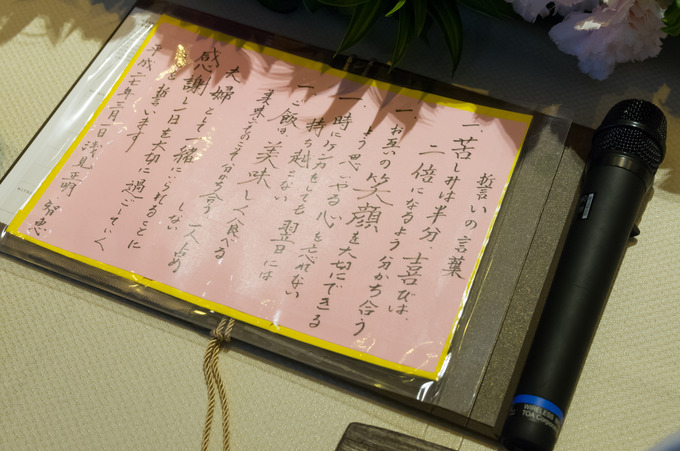 誓いの言葉
一、苦しみは半分、喜びは、
二倍になるよう分かち合う
一、お互いの笑顔を大切にできる
よう思いやる心を忘れない
一、時にケンカをしても翌日には
持ち越さない
一、ご飯は美味しく食べる
美味しいものこそ分かち合う 一人占め
しない
夫婦として一緒にいられることに
感謝し一日を大切に過ごしていく
を誓います
平成二十七年三月一日 浅見正明 智恵
WIRELESS
TOA Corporation